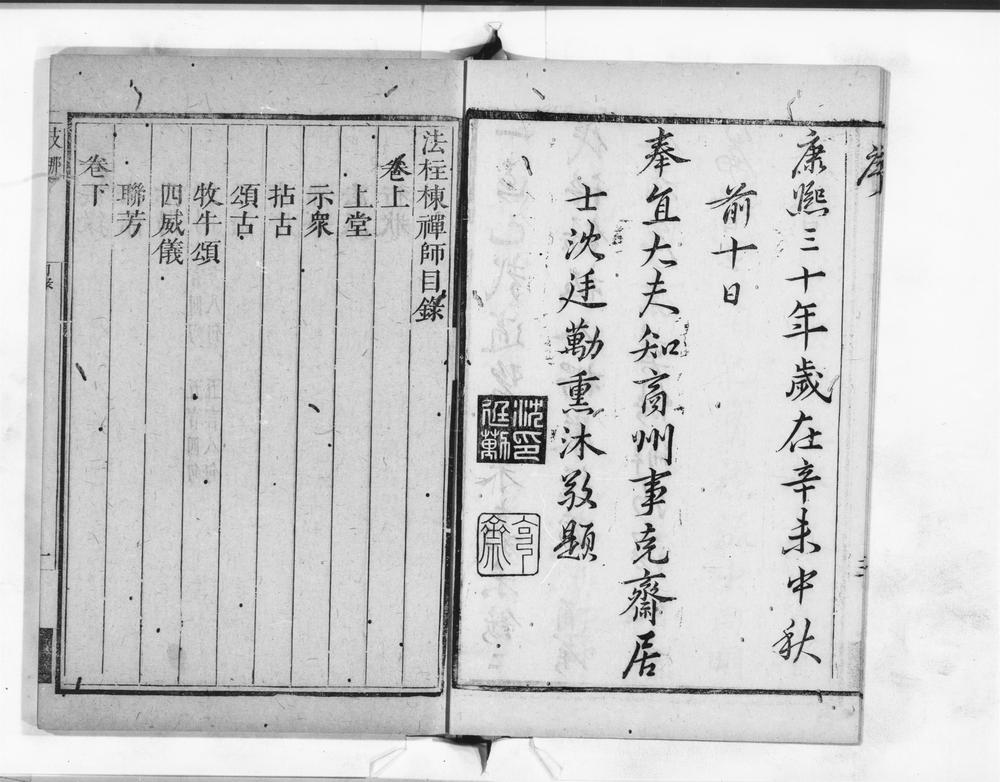 序
康熙三十年歲在辛未中秋
前十日
奉直大夫知商州事克齋居
士沈廷勱熏沐敬題
沈印廷勱
克齋
法柱棟禪師目錄
卷上
上堂
示衆
拈古
頌古
牧牛頌
四威儀
聯芳
卷下
目錄